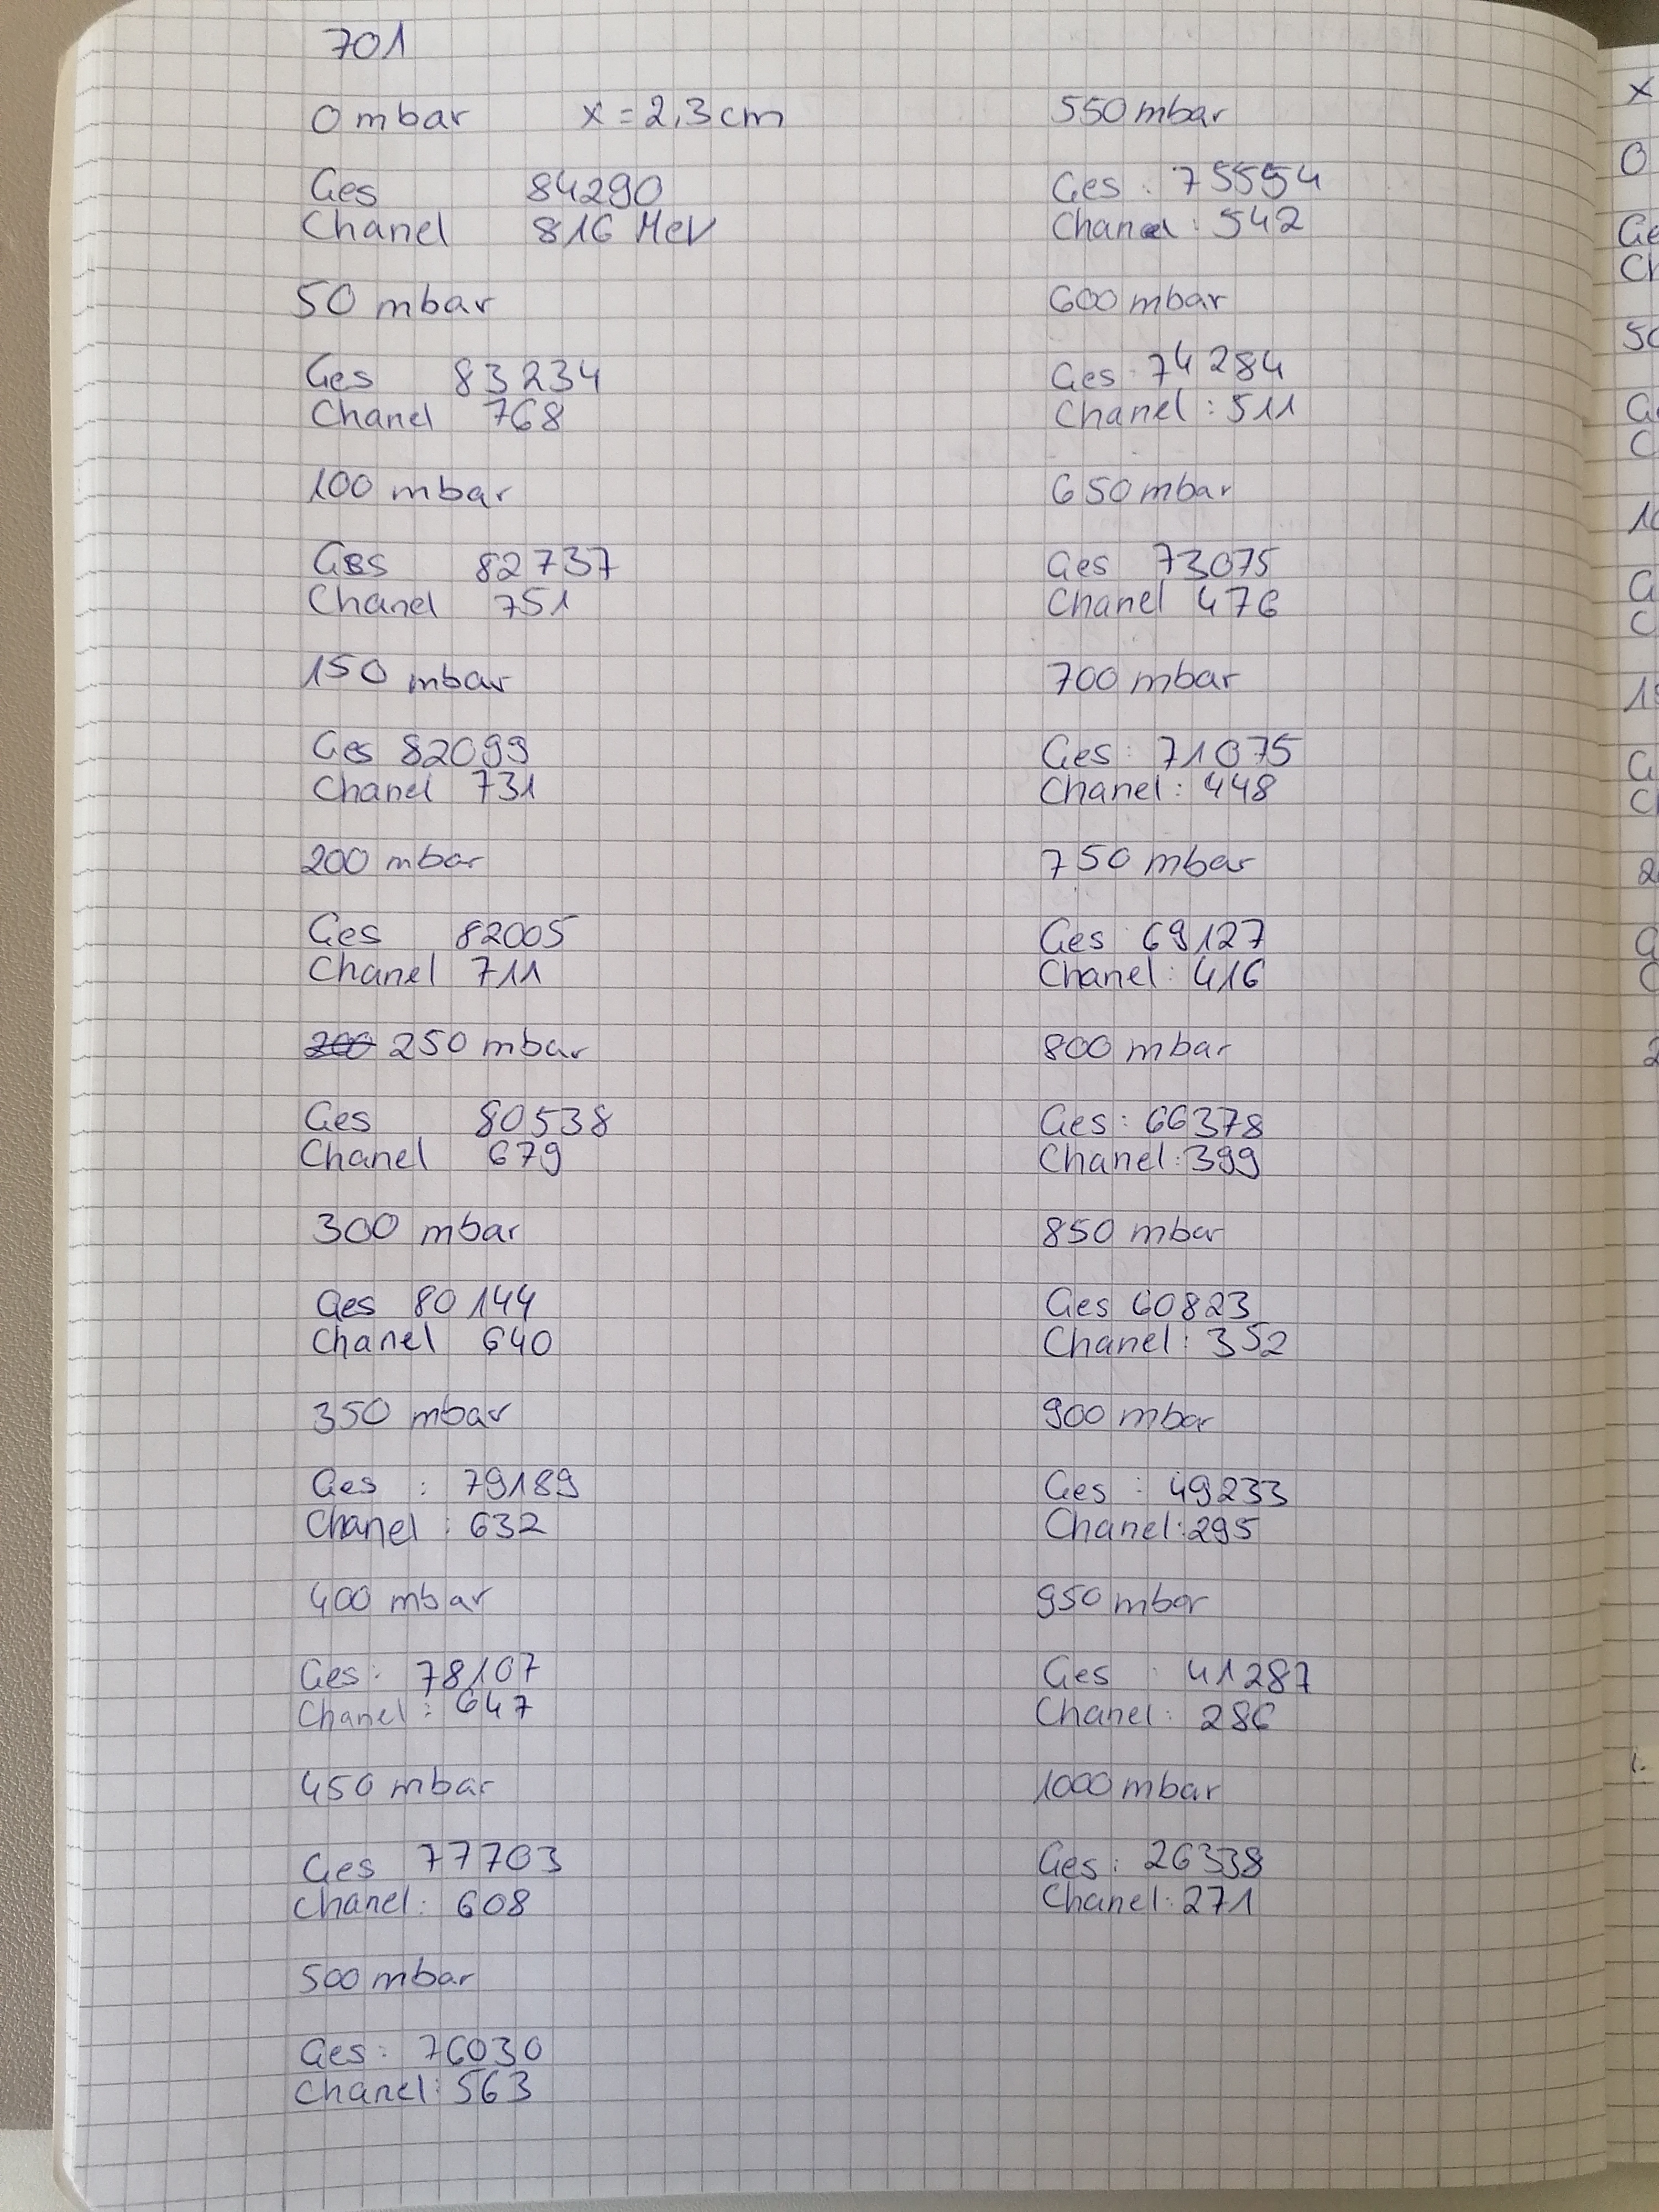 701
0 mbar x = 2,3 cm
Ges 84290
Chanel 816 MeV
50 mbar
Ges 83234
Chanel 768
100 mbar
Ges 82737
Chanel 751
150 mbar
Ges 82099
Chanel 731
200 mbar
Ges 82005
Chanel 711
200 250 mbar
Ges 80538
Chanel 679
300 mbar
Ges 80144
Chanel 640
350 mbar
Ges : 79189
Chanel : 632
400 mbar
Ges : 78107
Chanel : 647
450 mbar
Ges 77703
Chanel : 608
500 mbar
Ges : 76030
Chanel : 563
550 mbar
Ges : 75554
Chanel : 542
600 mbar
Ges 74284
Chanel : 511
650 mbar
Ges 73075
Chanel 476
700 mbar
Ges : 71075
Chanel : 448
750 mbar
Ges 69127
Chanel : 416
800 mbar
Ges : 66378
Chanel : 399
850 mbar
Ges 60823
Chanel : 352
900 mbar
Ges : 49233
Chanel : 295
950 mbar
Ges : 41287
Chanel : 286
1000 mbar
Ges : 26338
Chanel : 271
x
0